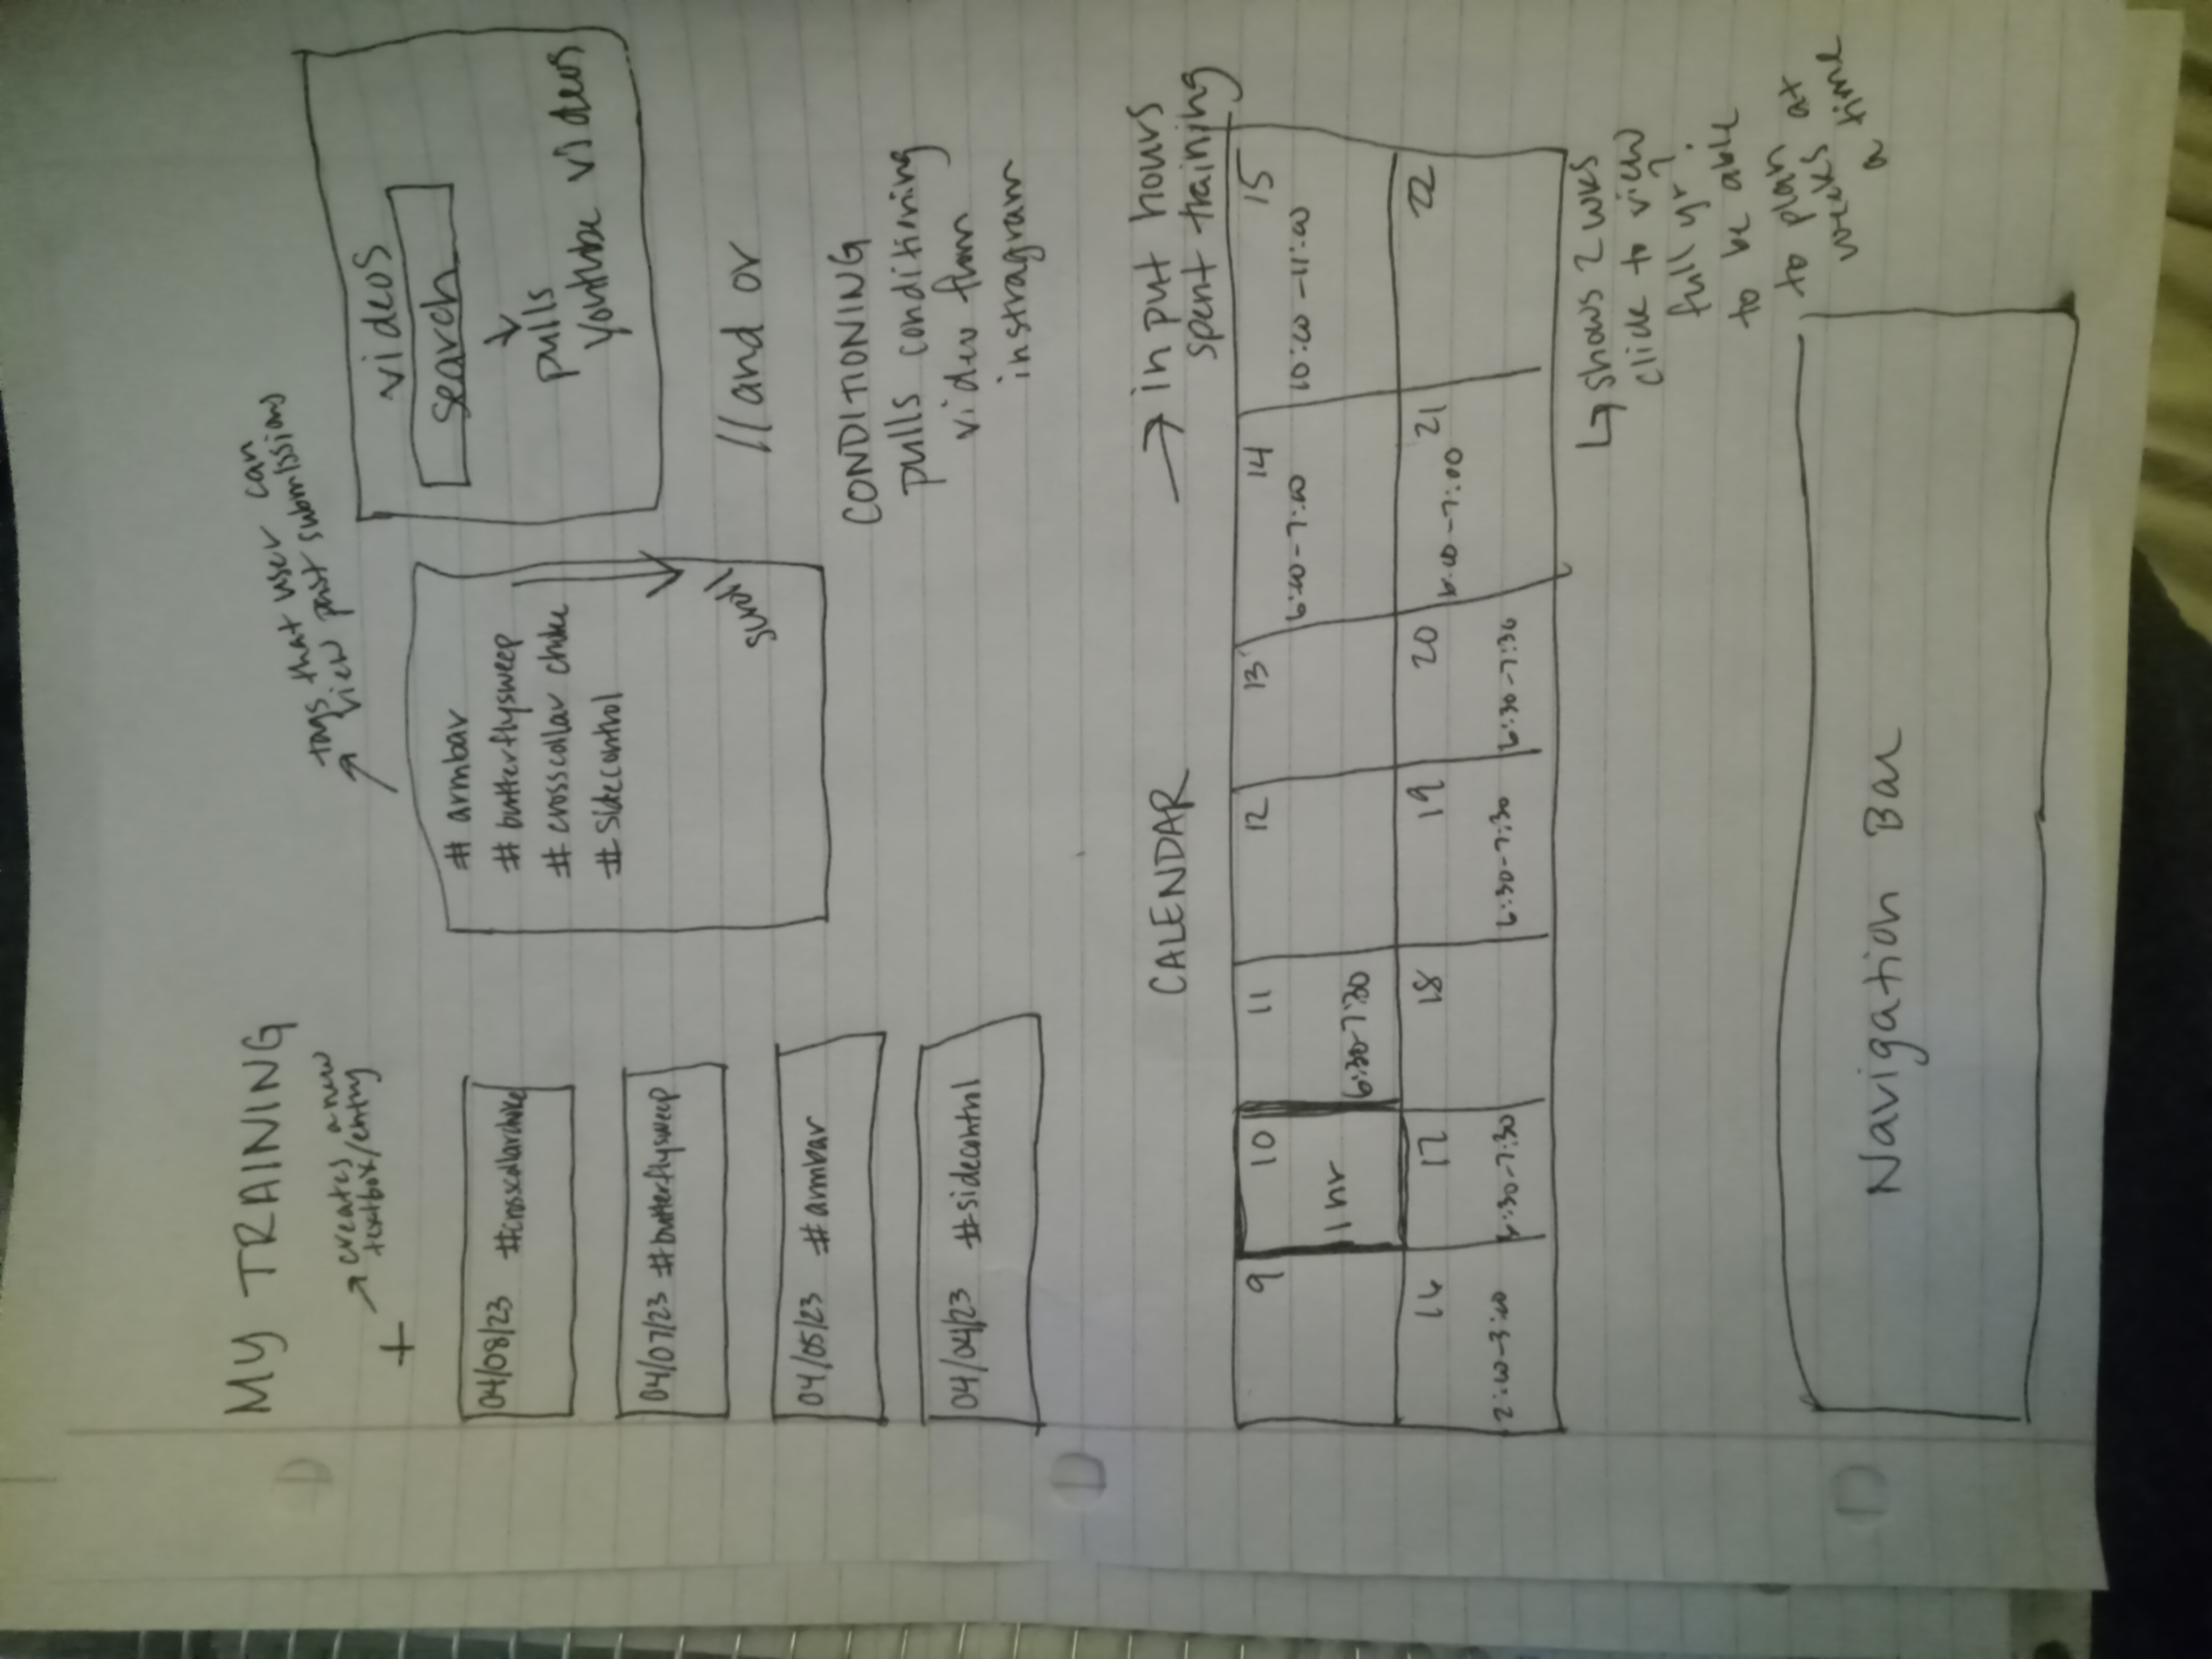 MY TRAINING
creates a new
textbox/entry
+
04/08/23 #crosscollarchoke
04/07/23 #butterflysweep
04/05/23 #armbar
04/04/23 #sidecontrol
tags that user can
view past submissions
# armbar
# butterflysweep
# crosscollar choke
# sidecontrol
scroll
videos
search
pulls
Youtube videos
//and or
CONDITIONING
pulls conditioning
video from
instragram
CALENDAR
input hours
spent training
9 10 11 12 13 14 15
1 hr 6:30-7:30 6:00-7:00 10:00-11:00
16 17 18 19 20 21 22
2:00-3:00 6:30-7:30 6:30-7:30 6:30-7:30 6:00-7:00
shows 2 wks
click to view
full yr?
to be able
to plan
weeks at
a time
Navigation Bar